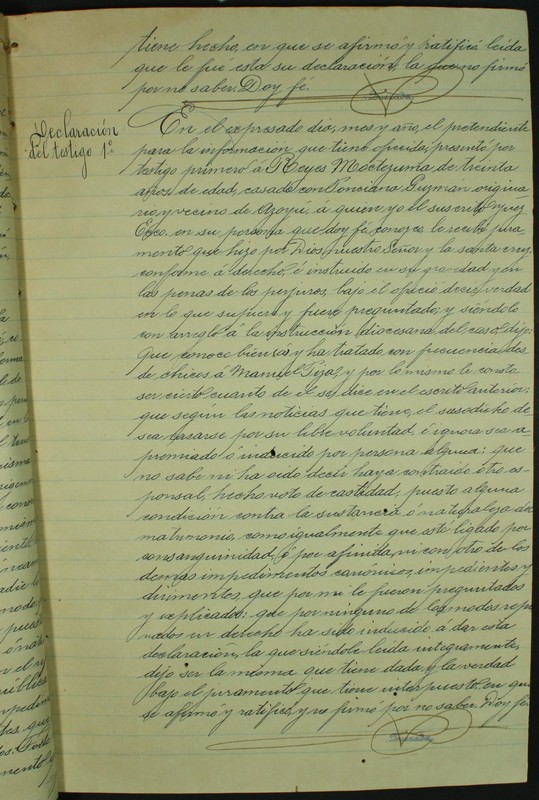 tiene hecho, en que se afirmó y ratificó leída
que le fué esta su declaración, la que no firmó
por no saber. Doy fé.
Declaración
del testigo 1º
En el expresado dia, mes y año, el pretendiente
para la informacion que tiene ofrecida; presentó por
testigo primero á Reyes Moctezuma de treinta
años de edad, casado con Ponciana Guzman origina
rio, y vecino de Azoyú, á quien, yo el suscrito Juez
Ecco. en su persona que doy fé, conozco le recibí jura
mento que hizo por Dios nuestro Señor y la santa cruz,
conforme á derecho, é instruido en su gravedad y en
las penas de los perjuros, bajo el ofreció decir verdad
en lo que supiere y fuere preguntado; y siéndolo
con arreglo á la instrucción diocesana del caso, dijo:
Que conoce bien y ha tratado con frecuencia des
de chicos á Manuel y por lo mismo le consta
ser cierto cuanto de el se dice en el escrito anterior:
que segun las noticias que tiene, el susodicho de
sea casarse por su libre voluntad é ignora sea a-
premiado ó inducido por persona alguna: que
no sabe ni ha oido decir haya contraido otro es-
ponsal, hecho voto de castidad, puesto alguna
condición contra la sustancia ó naturaleza del
matrimonio, como igualmente que esté ligado por
consanguinidad, ó por afinida, ni con otro de los
demas impedimentos canónicos, impedientes y
dirimentes que por mi le fueron preguntados
y explicados: que por ninguno de los modos repro
vados en derecho ha sido inducido á dar esta
declaración, la que siéndole leida integramente,
dijo ser la misma que tiene dada, y la verdad
bajo el juramento que tiene interpuesto, en que
se afirmó y ratificó, y no firmó por no saber. Doy fé.